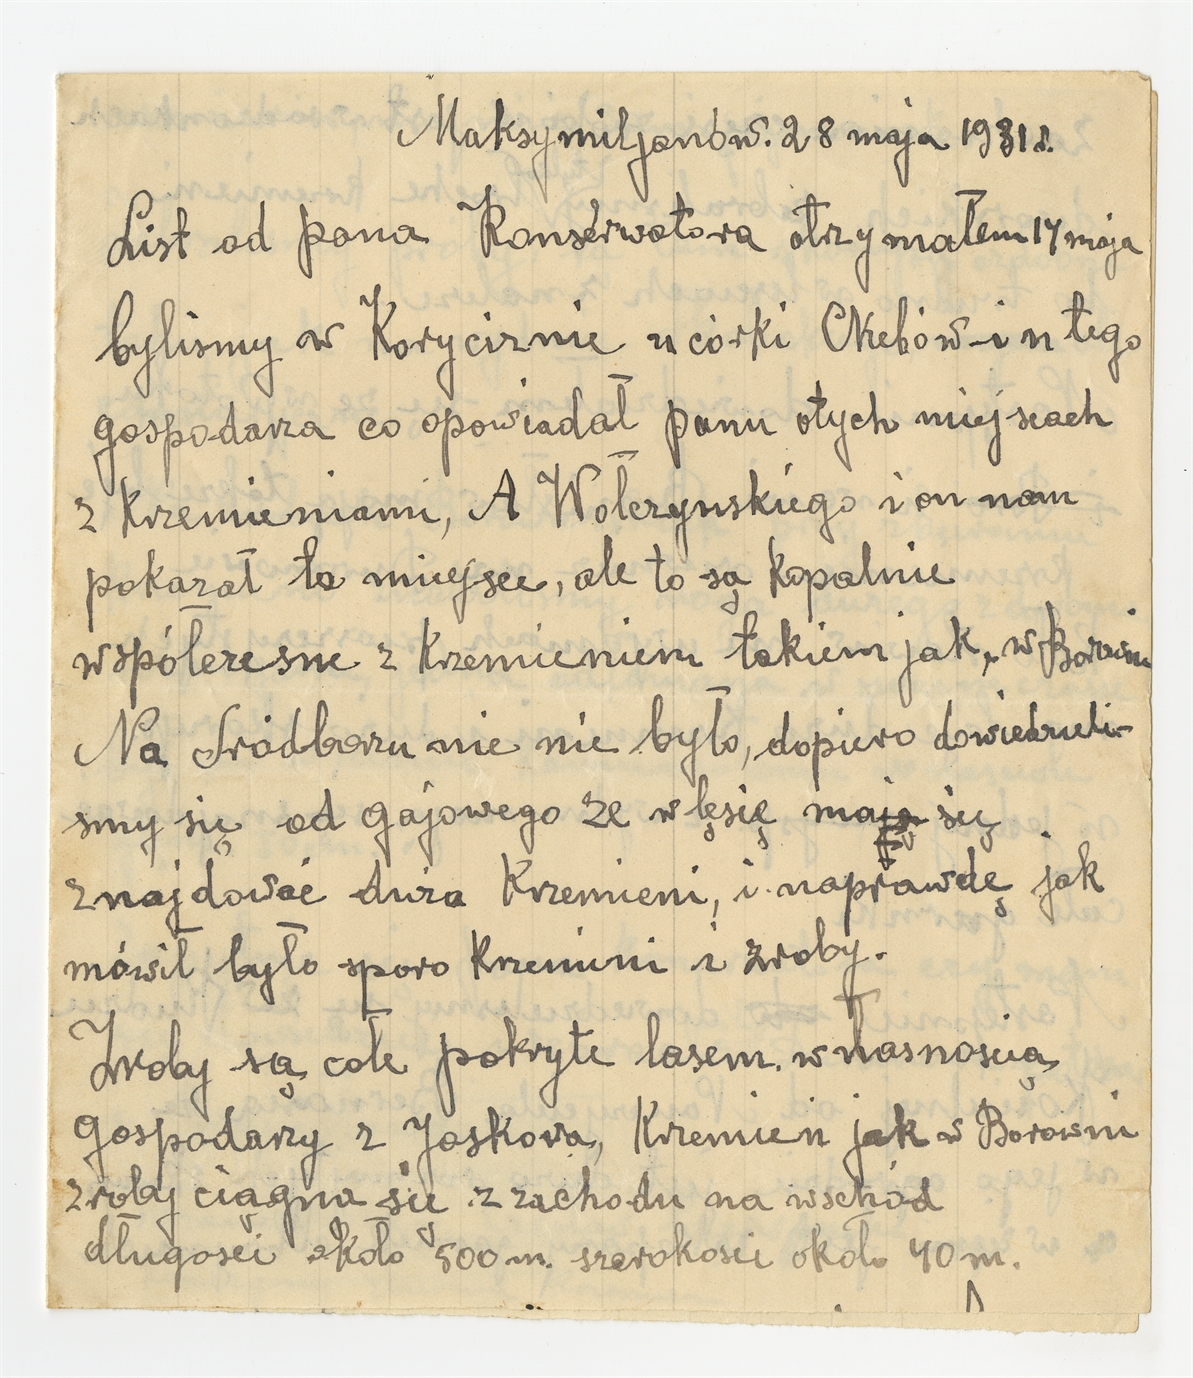 Maksymiljanów. 28 maja 1931 r.
List od pana Konserwatora otrzymałem 17 maja
bylismy w Koryciznie u córki Chebów i u tego
gospodarza co opowiadał panu otych miejscach
z Krzemieniami, A Wołczynskiego i on nam
pokazał to miejsce, ale to są Kopalnie
wspólczesne z Krzemieniem takiem jak, w Borowni
Na Sródborzu nie nie było, dopiero dowiedzieli-
smy się od gajowego że w lęsię mają się
znajdować duza Krzemieni, i naprawdę jak
mówił było sporo Krzemini i zroby.
Zroby są cołe pokryte lasem. własnoscią
gospodarzy z Jaskowa, Krzemien jak w Borowni
zroby ciągną się z zachodu na wschód
długosci około 500 m. szerokosci około 40 m.